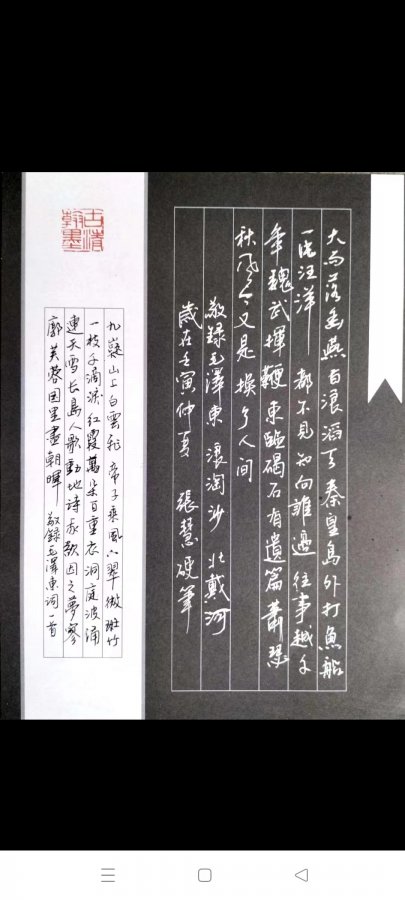 大雨落幽燕白浪滔天秦皇島外打魚船
一片汪洋 都不見知向誰邊往事越千
年魏武揮鞭東臨碣石有遺篇蕭瑟
秋風今又是換了人間
敬錄毛澤東 浪淘沙 北戴河
歲在壬寅仲夏 張慧硬筆
古清
翰墨
九嶷山上白雲飛帝子乘風下翠微斑竹
一枝千滴淚紅霞萬朵百重衣洞庭波涌
連天雪長島人歌動地詩我欲因之夢寥
廓芙蓉國里盡朝暉 敬錄毛澤東詞一首